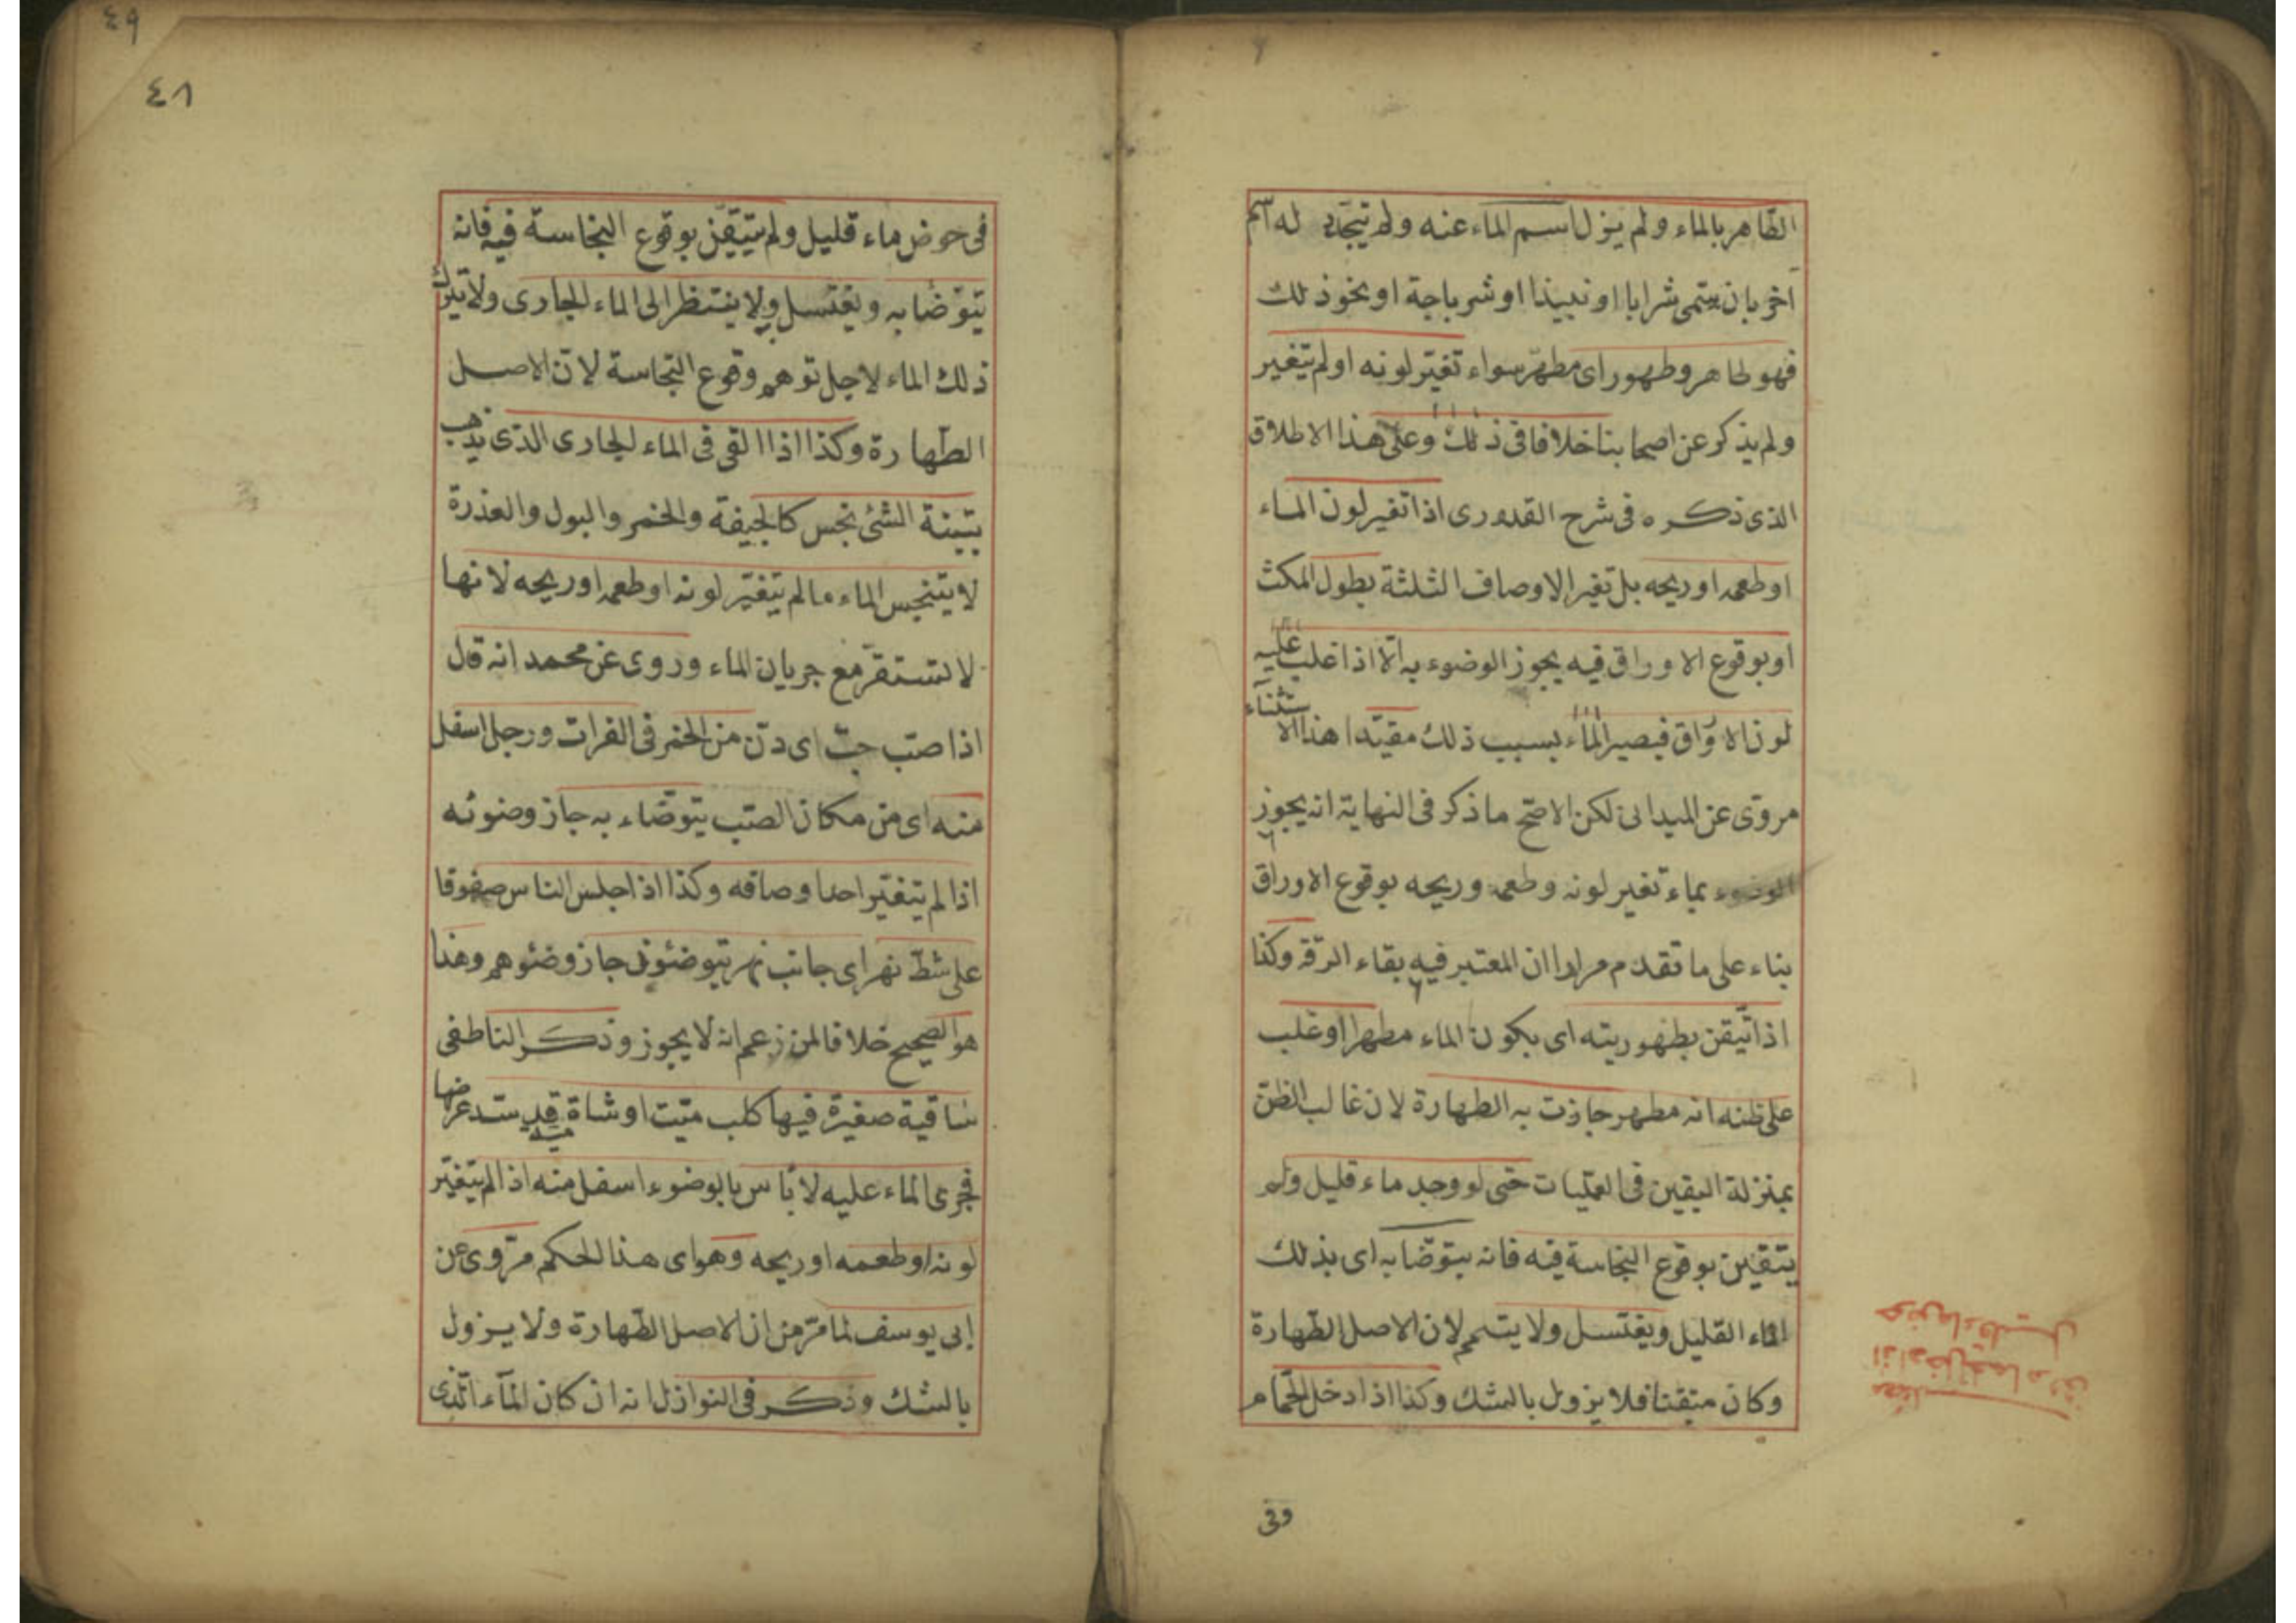 الطاهر بالماء ولم يزل اسم الماء عنه ولم يتجدد له اسم
آخر بان يسمى شرابا او نبيذا او شرباجة او نحو ذلك
فهو طاهر وطهور اى مطهر سواء تغير لونه او لم يتغير
ولم يذكر عن اصحابنا خلافا فى ذلك وعلى هذا الاطلاق
الذى ذكره فى شرح القدورى اذا تغير لون الماء
او طعمه او ريحه بل تغير الاوصاف الثلثة بطول المكث
او بوقوع الاوراق فيه يجوز الوضوء به الا اذا غلب عليه
لون الاوراق فيصير الماء بسبب ذلك مقيدا هذا الاستثناء
مروى عن الميدانى لكن الاصح ما ذكر فى النهاية انه يجوز
الوضوء بماء تغير لونه وطعمه وريحه بوقوع الاوراق
بناء على ما تقدم مرارا ان المعتبر فيه بقاء الرقة وكذا
اذا تيقن بطهوريته اى بكون الماء مطهرا او غلب
على ظنه انه مطهر جازت به الطهارة لان غالب الظن
بمنزلة اليقين فى العمليات حتى لو وجد ماء قليل ولم
يتقين بوقوع النجاسة فيه فانه يتوضا به اى بذلك
الماء القليل ويغتسل ولا يتيمم لان الاصل الطهارة
وكان متيقنا فلا يزول بالشك وكذا اذا دخل الحمام
وفى
اذا دخل الحمام وفى
حوض ماء قليل
٤٩
٤٨
فى حوض ماء قليل ولم يتيقن بوقوع النجاسة فيه فانه
يتوضا به ويغتسل ولا ينتظر الى الماء الجارى ولا يترك
ذلك الماء لاجل توهم وقوع النجاسة لان الاصل
الطهارة وكذا اذا القى فى الماء الجارى الذى يذهب
بتبنة الشئ نجس كالجيفة والخمر والبول والعذرة
لا يتنجس الماء ما لم يتغير لونه او طعمه او ريحه لانها
لا تستقر مع جريان الماء وروى عن محمد انه قال
اذا صب جب اى دن من الخمر فى الفرات ورجل اسفل
منه اى من مكان الصب يتوضاء به جاز وضوئه
اذا لم يتغير احد اوصافه وكذا اذا جلس الناس صفوفا
على شط نهر اى جانب نهر يتوضئون جاز وضئوهم وهذا
هو الصحيح خلافا لمن زعم انه لا يجوز وذكر الناطفى
ساقية صغيرة فيها كلب ميت او شاة قد سد عرضها
فجرى الماء عليه لا باس بالوضوء اسفل منه اذا لم يتغير
لونه او طعمه او ريحه وهو اى هذا الحكم مروى عن
ابى يوسف لما مر من ان الاصل الطهارة ولا يزول
بالشك وذكر فى النوازل انه ان كان الماء الذى